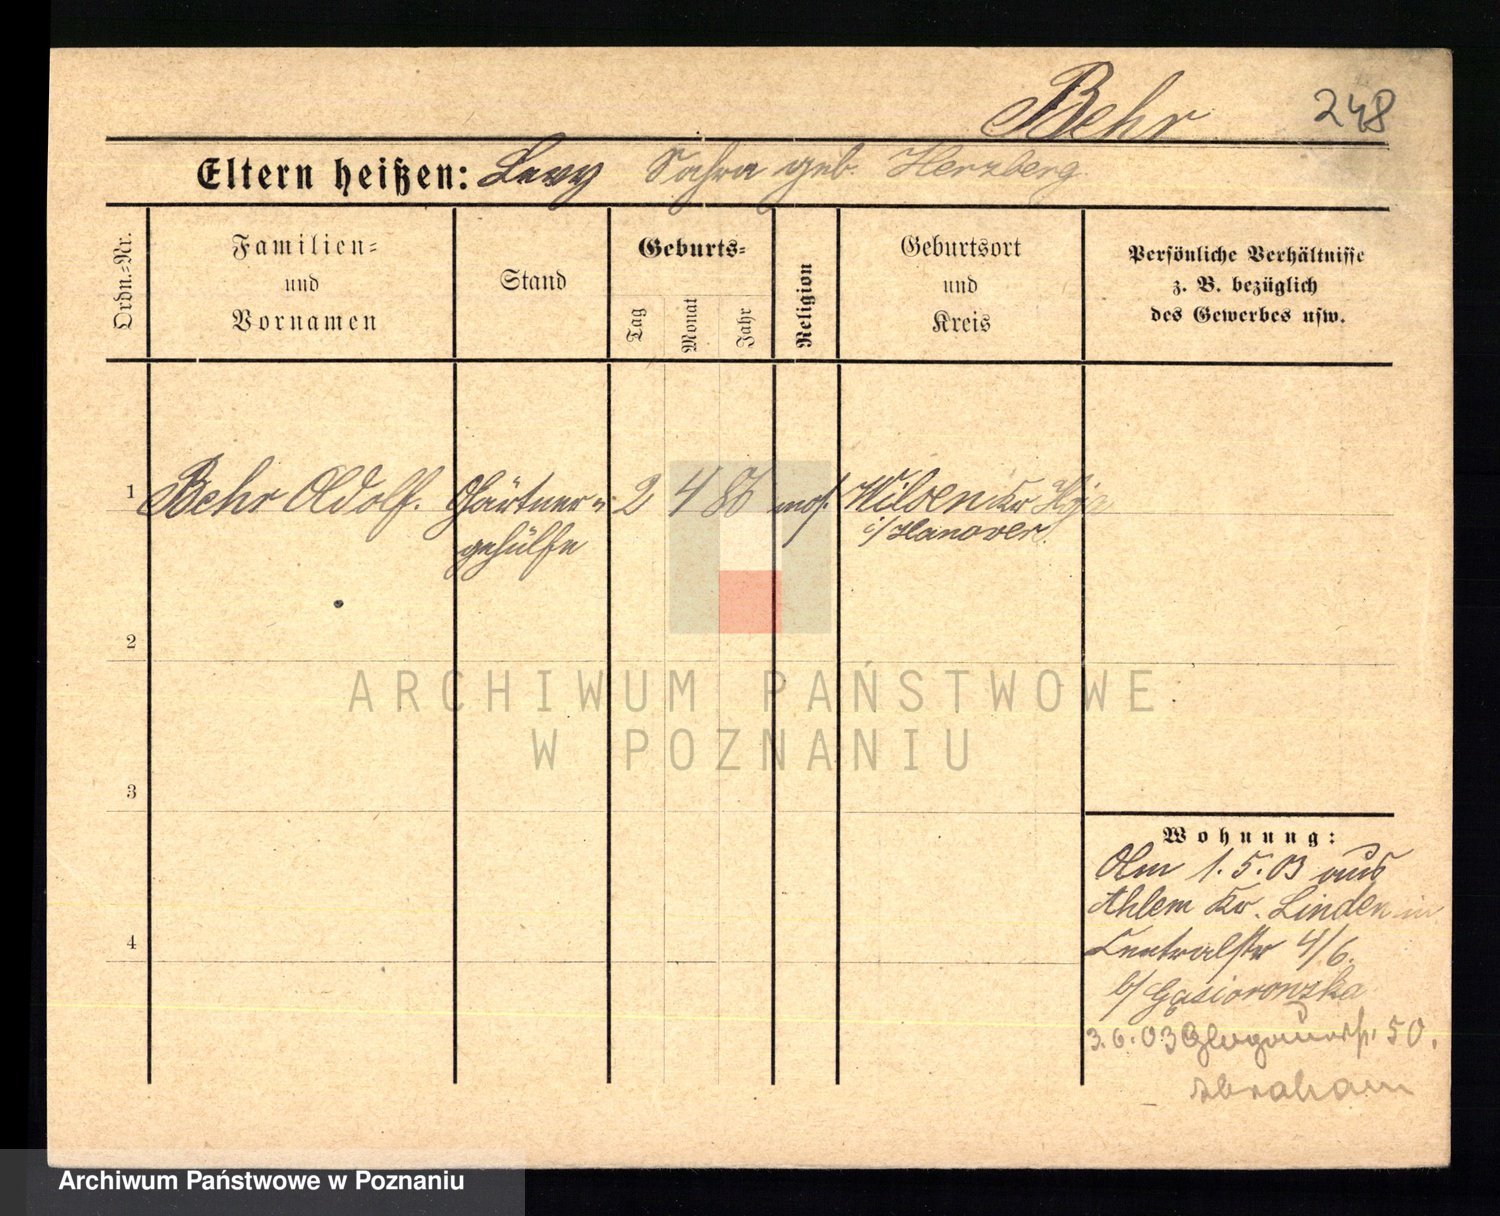 Behr
248
Eltern heißen: Levy Sahra geb. Herzberg
Ordn.-Nr.
Familien-
und
Vornamen
Stand
Geburts-
Tag
Monat
Jahr
Religion
Geburtsort
und
Kreis
Persönliche Verhältnisse
z. B. bezüglich
des Gewerbes usw.
1 Behr Adolf. Gärtner- 2 4 86 mos. Wilsen Kr
gehülfe i/Hanover
2
3
4
Wohnung:
Am 1.5.03 aus
Ahlem Kr. Linden in
Centralstr 4/6.
b/ Gąsiorowska
3.6.03 Glogauerstr. 50.
Abraham
ARCHIWUM PAŃSTWOWE
W POZNANIU
Archiwum Państwowe w Poznaniu